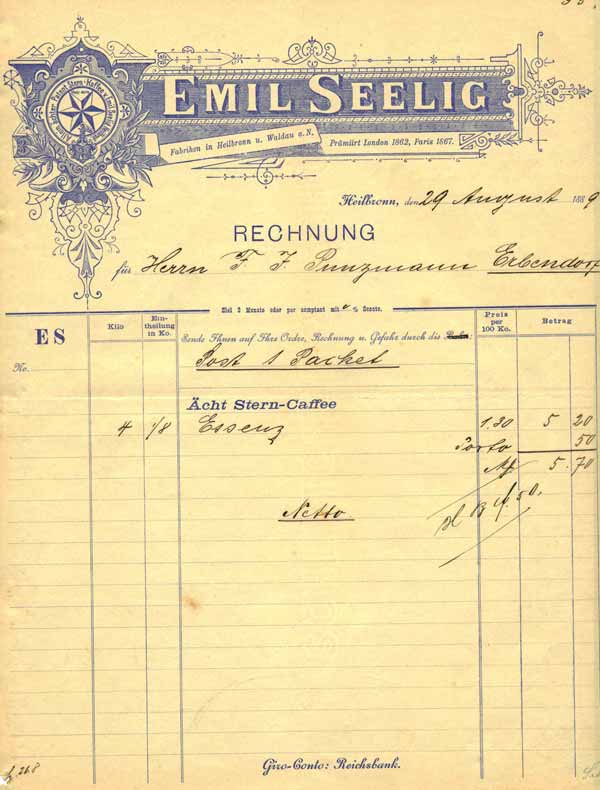 EMIL SEELIG
Fabriken in Heilbronn u. Waldau a.N. Prämiirt London 1862, Paris 1867.
Heilbronn, den 29 August 1889
RECHNUNG
für Herrn F. J. Punzmann Erbendorf
Ziel 3 Monate oder per comptant mit % Sconto.
ES
Kilo
Ein-
theilung
in Ko.
Preis
per
100 Ko.
Betrag
Sende Ihnen auf Ihre Ordre, Rechnung u. Gefahr durch die
No.
Post 1 Packet
Ächt Stern-Caffee
4 1/8 Essenz 1.30 5 20
Porto 50
M. 5.70
Netto
Giro-Conto: Reichsbank.